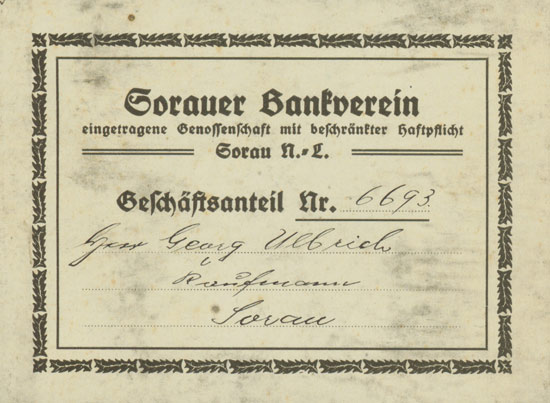 Sorauer Bankverein
eingetragene Genossenschaft mit beschränkter Haftpflicht
Sorau N.-L.
Geschäftsanteil Nr. 6693.
Herr Georg Ullrich
Kaufmann
Sorau